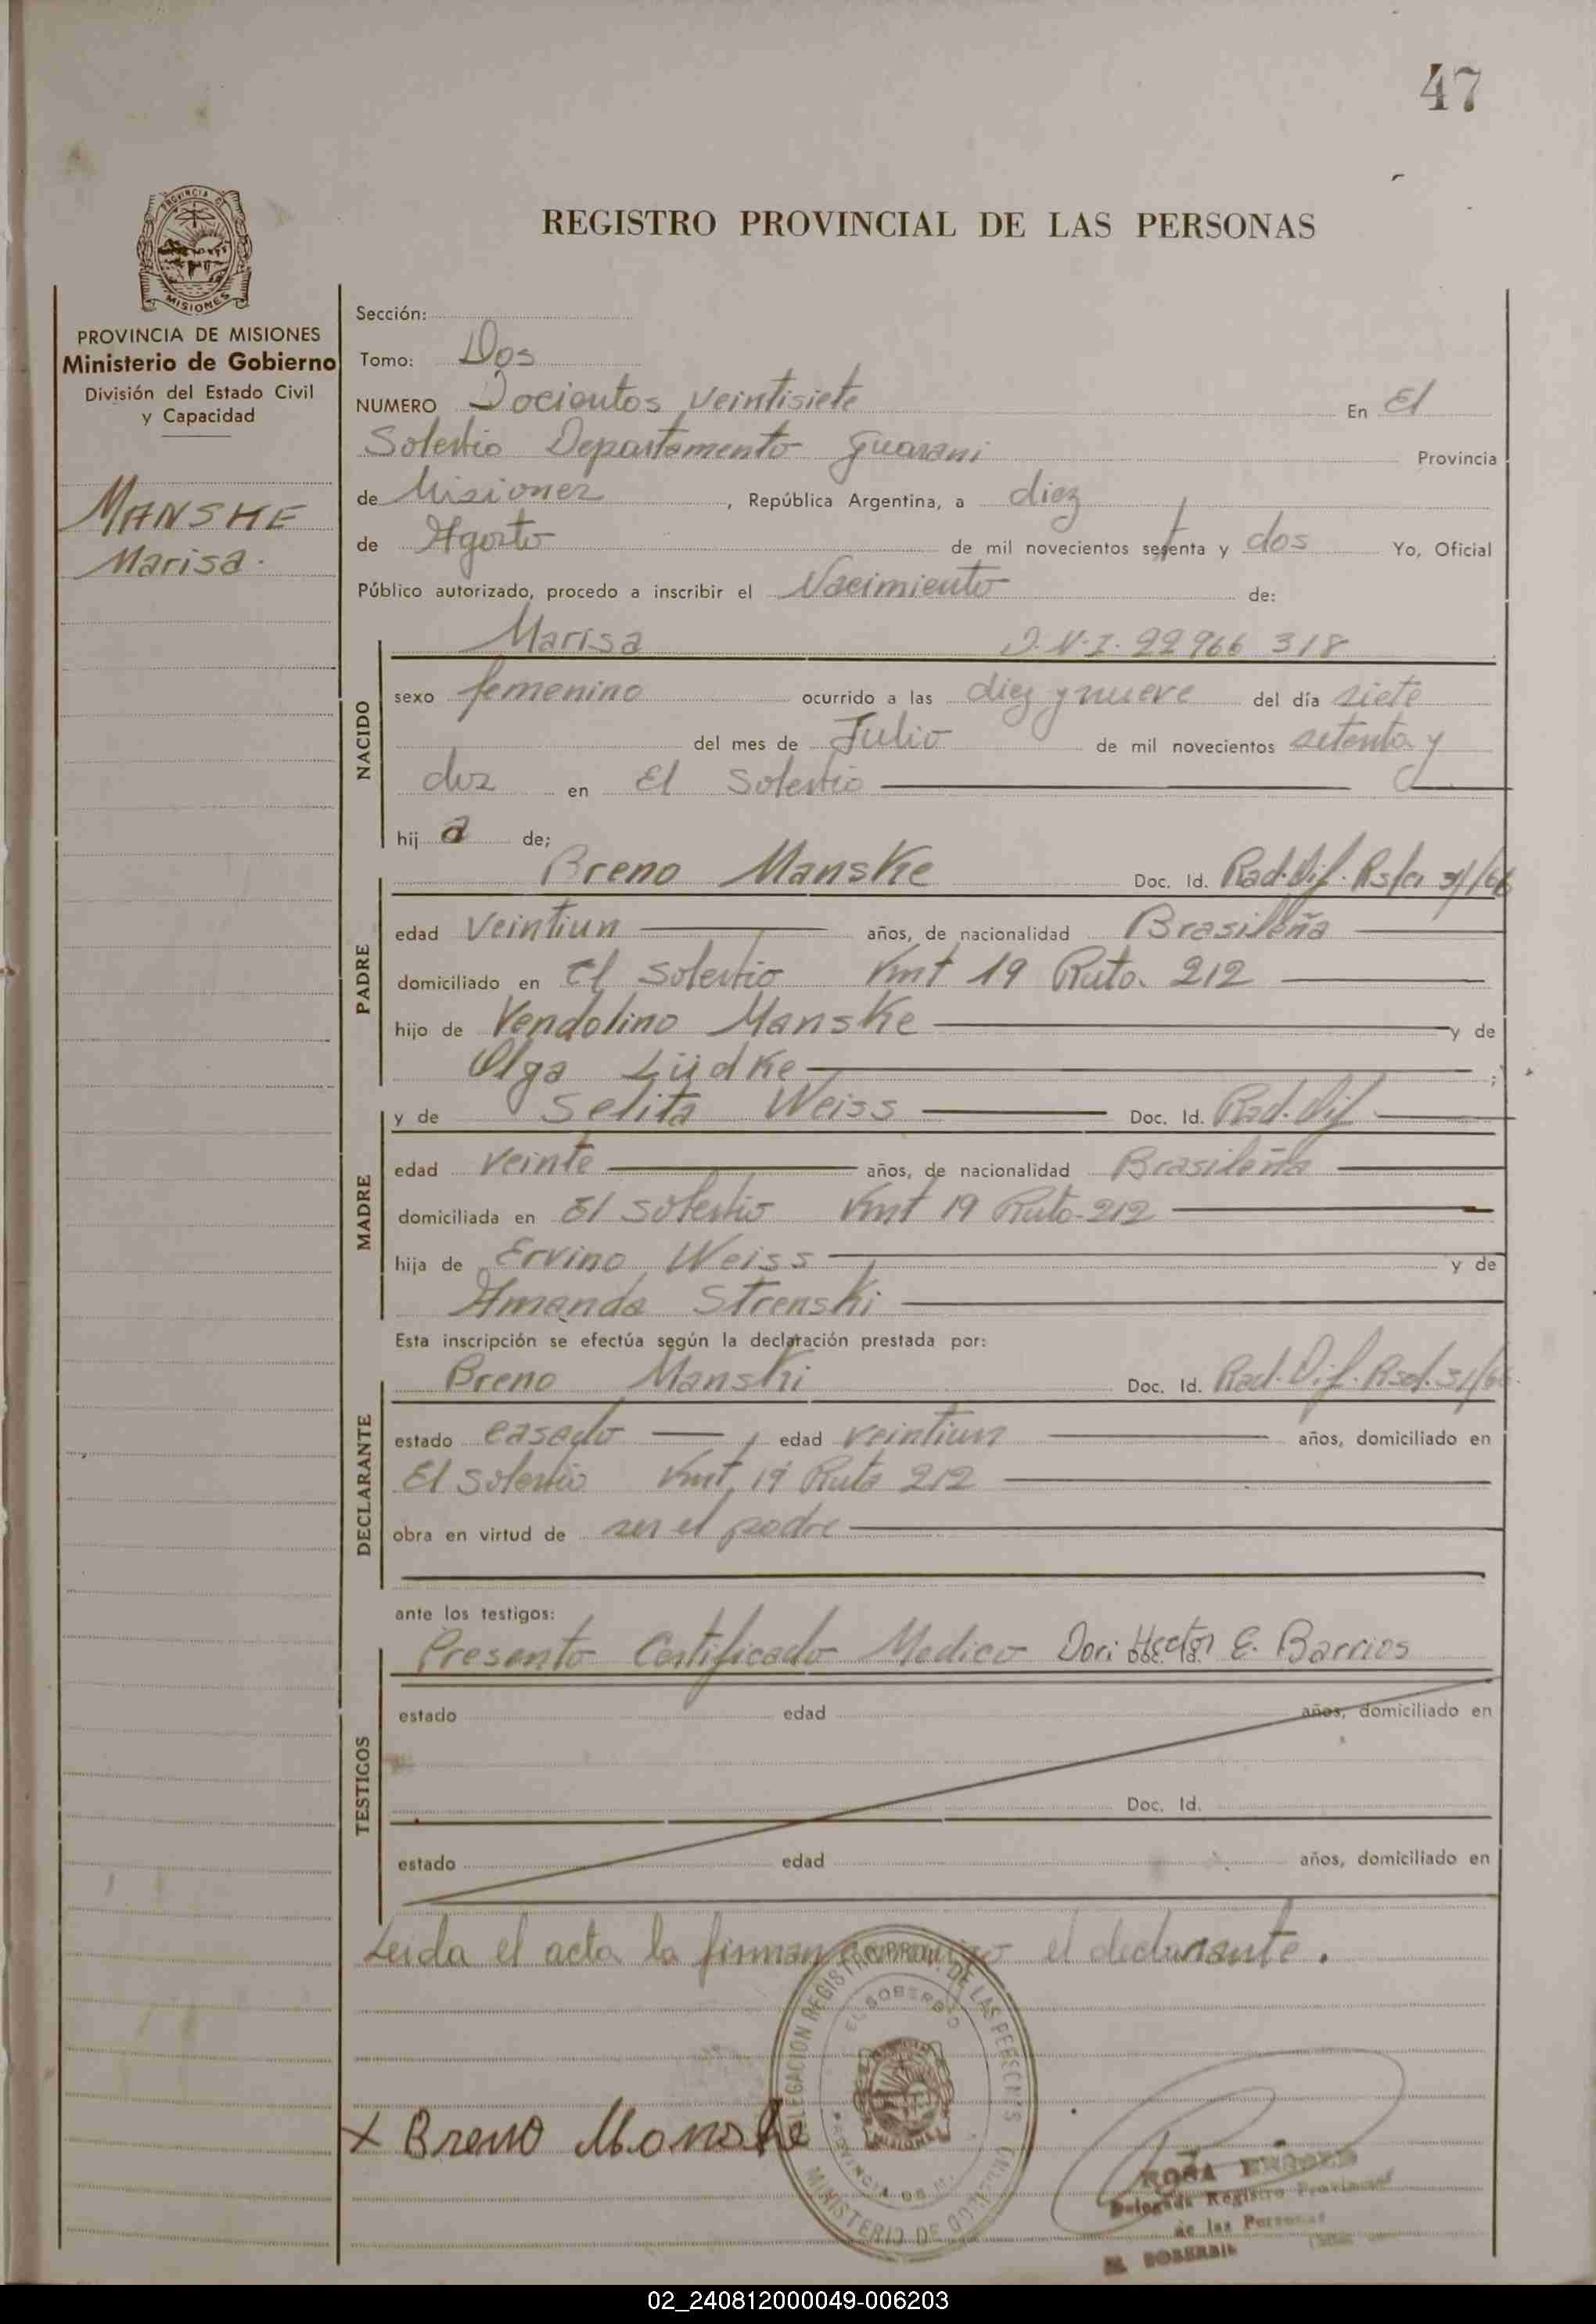 47
REGISTRO PROVINCIAL DE LAS PERSONAS
PROVINCIA DE
MISIONES
PROVINCIA DE MISIONES
Ministerio de Gobierno
División del Estado Civil
y Capacidad
MANSKE
Marisa.
Sección:
Tomo: Dos
NUMERO Docientos veintisiete En El
Soberbio Departamento Guarani Provincia
de Misiones, República Argentina, a diez
de Agosto de mil novecientos setenta y dos Yo, Oficial
Público autorizado, procedo a inscribir el Nacimiento de:
Marisa D.N.I. 22966 318
NACIDO
sexo femenino ocurrido a las diez y nueve del día siete
del mes de Julio de mil novecientos setenta y
dos en El Soberbio
hij a de;
PADRE
Breno Manske Doc. Id. Rad. Dif. 31/66
edad veintiun años, de nacionalidad Brasileña
domiciliado en El Soberbio Kmt 19 Ruta. 212
hijo de Vendolino Manske y de
Olga Lüdke ;
MADRE
y de Selita Weiss Doc. Id. Rad. Dif
edad veinte años, de nacionalidad Brasileña
domiciliada en El Soberbio Kmt 19 Ruta-212
hija de Ervino Weiss y de
Amanda Strenski
Esta inscripción se efectúa según la declaración prestada por:
DECLARANTE
Breno Manski Doc. Id. Rad. Dif. 31/66.
estado casado, edad veintiun años, domiciliado en
El Soberbio Kmt. 19 Ruta 212
obra en virtud de ser el padre
ante los testigos:
TESTIGOS
Presento Certificado Medico Dor: Hector E. Barrios
Doc. Id.
estado edad años, domiciliado en
Doc. Id.
estado edad años, domiciliado en
Leida el acta la firman conmigo el declarante.
DELEGACION REGISTRO PROV. DE LAS PERSONAS
EL SOBERBIO
PROVINCIA DE M.
MISIONES
MINISTERIO DE GOBIERNO
x Breno Manske
ROSA
Delegada Registro Provincial
de las Personas
EL SOBERBIO
02_240812000049-006203